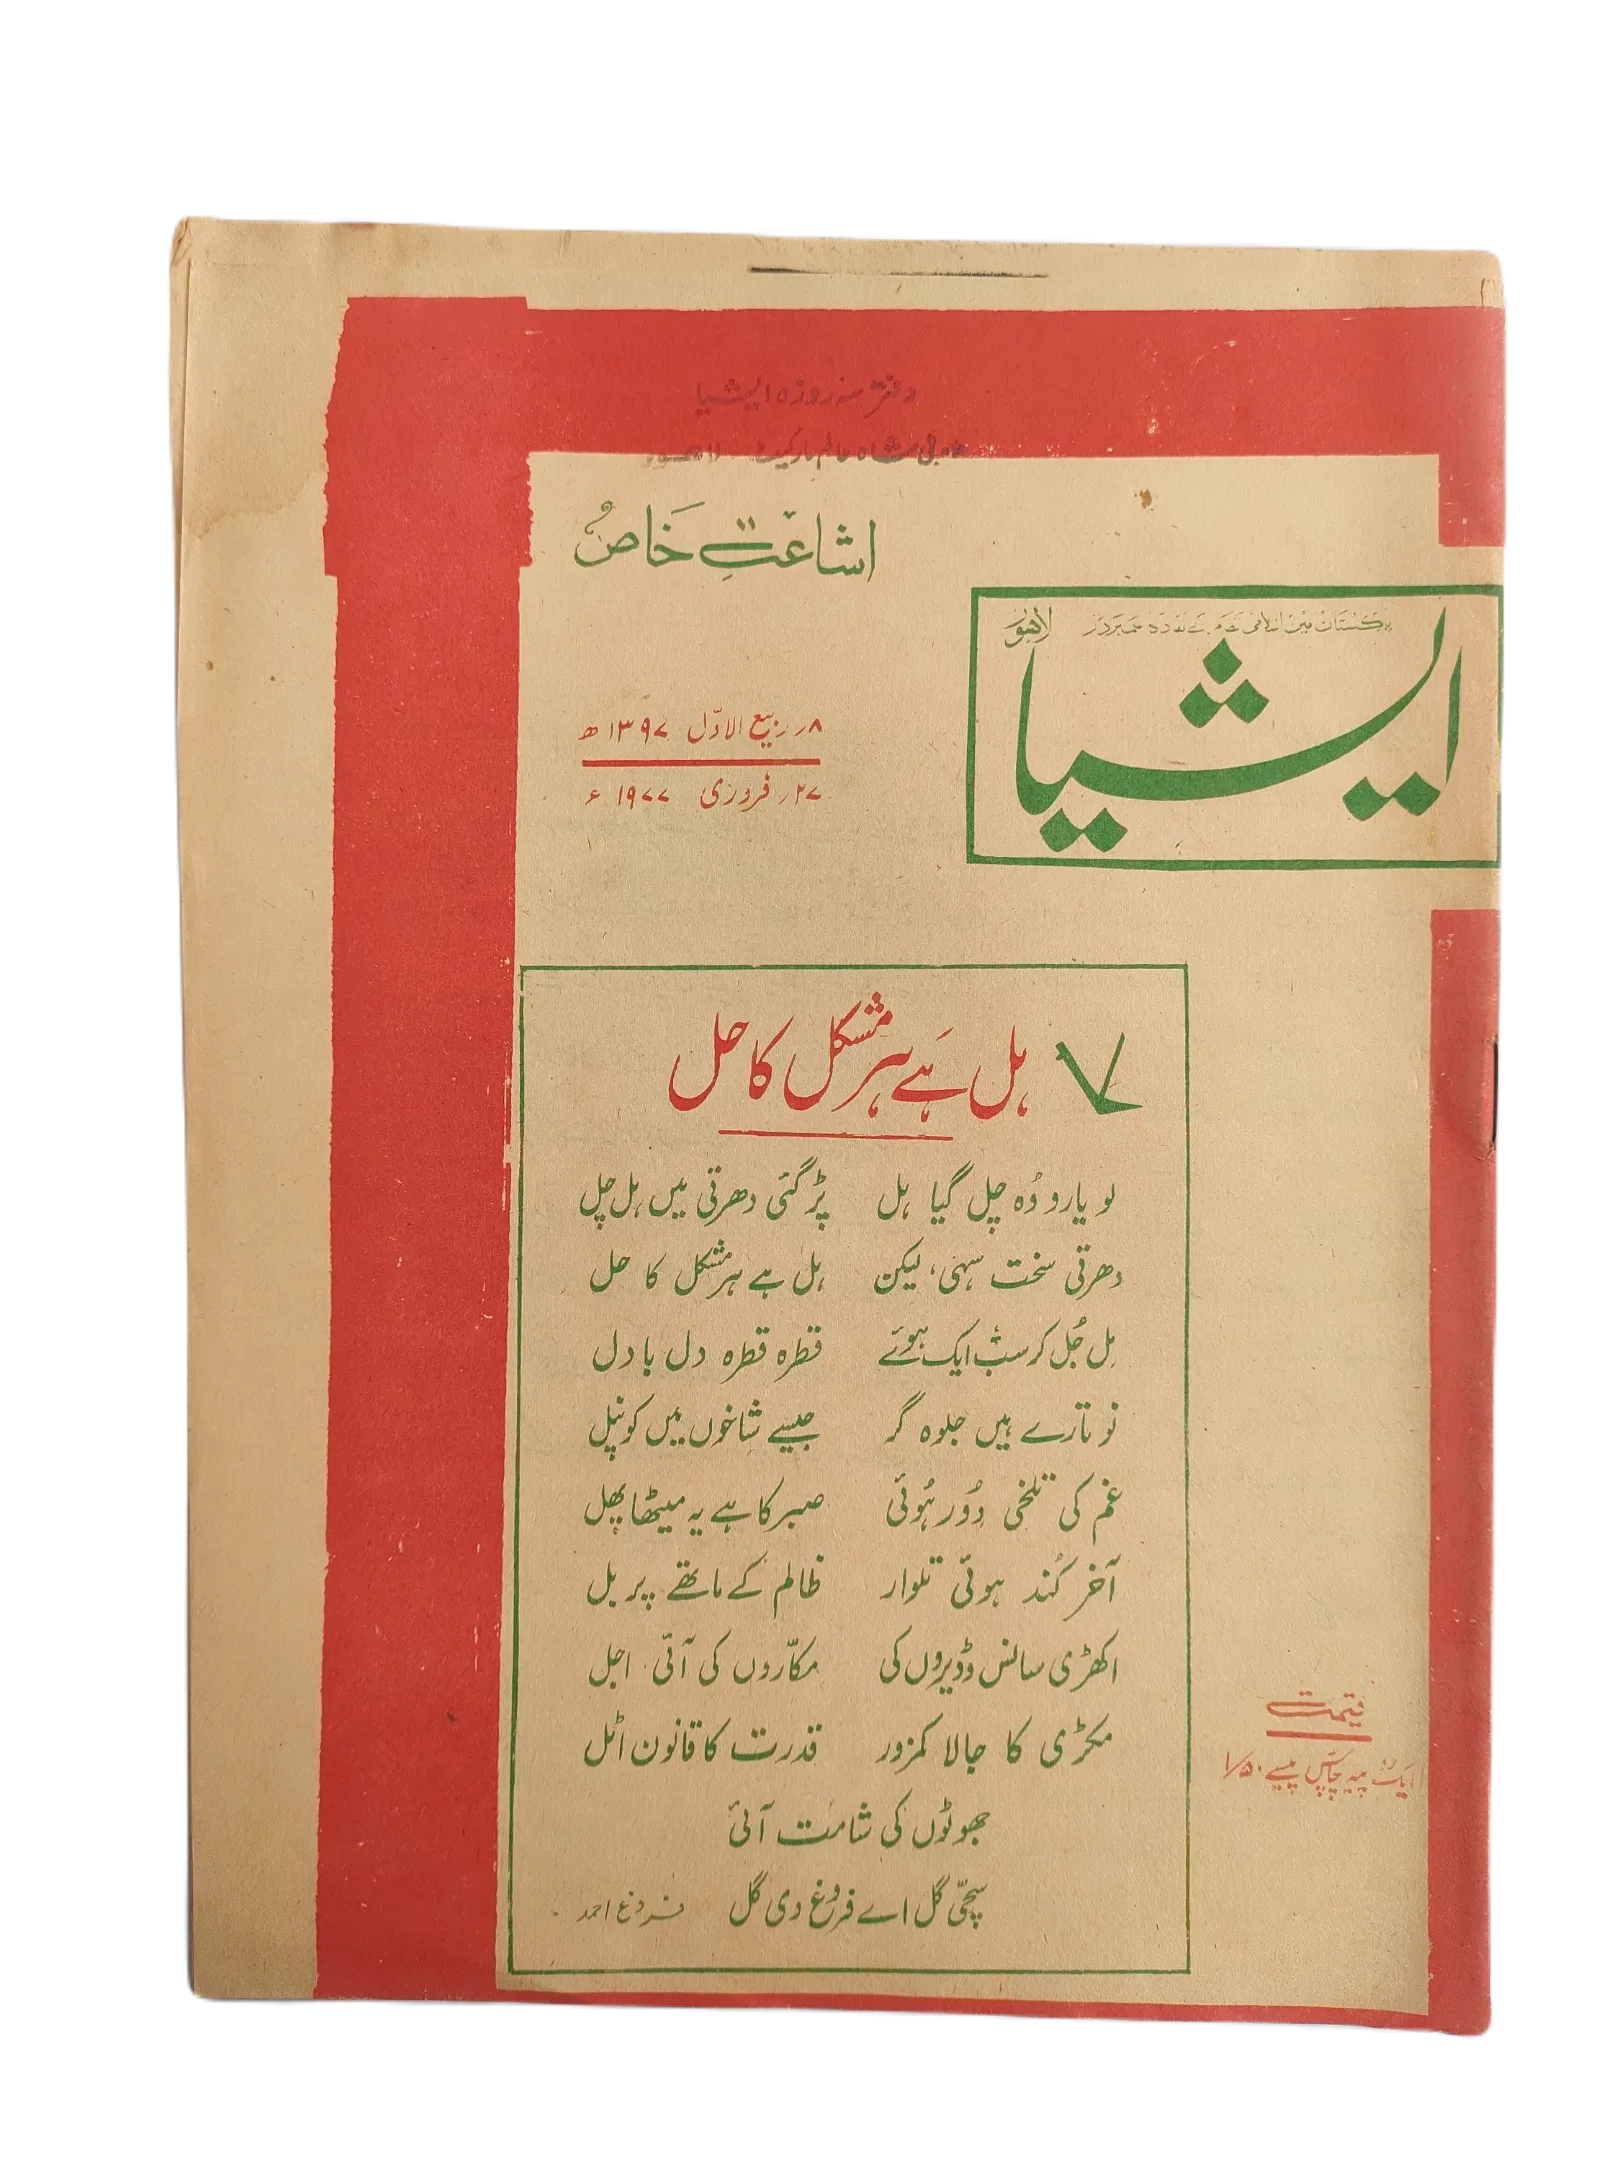 دفتر سہ روزہ ایشیا
شاہ عالم مارکیٹ لاہور
اشاعتِ خاص
لاہور
ایشیا
۸؍ ربیع الاوّل ۱۳۹۷ ھ
۲۷؍ فروری ۱۹۷۷ ء
ہل ہے ہر مشکل کا حل
لو یارو وُہ چل گیا ہل پڑ گئی دھرتی میں ہل چل
دھرتی سخت سہی، لیکن ہل ہے ہر مشکل کا حل
مِل جُل کر سب ایک ہوئے قطرہ قطرہ دل بادل
نو تارے ہیں جلوہ گر جیسے شاخوں میں کونپل
غم کی تلخی دُور ہُوئی صبر کا ہے یہ میٹھا پھل
آخر کُند ہوئی تلوار ظالم کے ماتھے پر بل
اکھڑی سانس وڈیروں کی مکّاروں کی آئی اجل
مکڑی کا جالا کمزور قدرت کا قانون اٹل
جھوٹوں کی شامت آئی
سچّی گل اے فروغؔ دی گل فروغ احمد
قیمت
ایک روپیہ پچاس پیسے ۱/۵۰